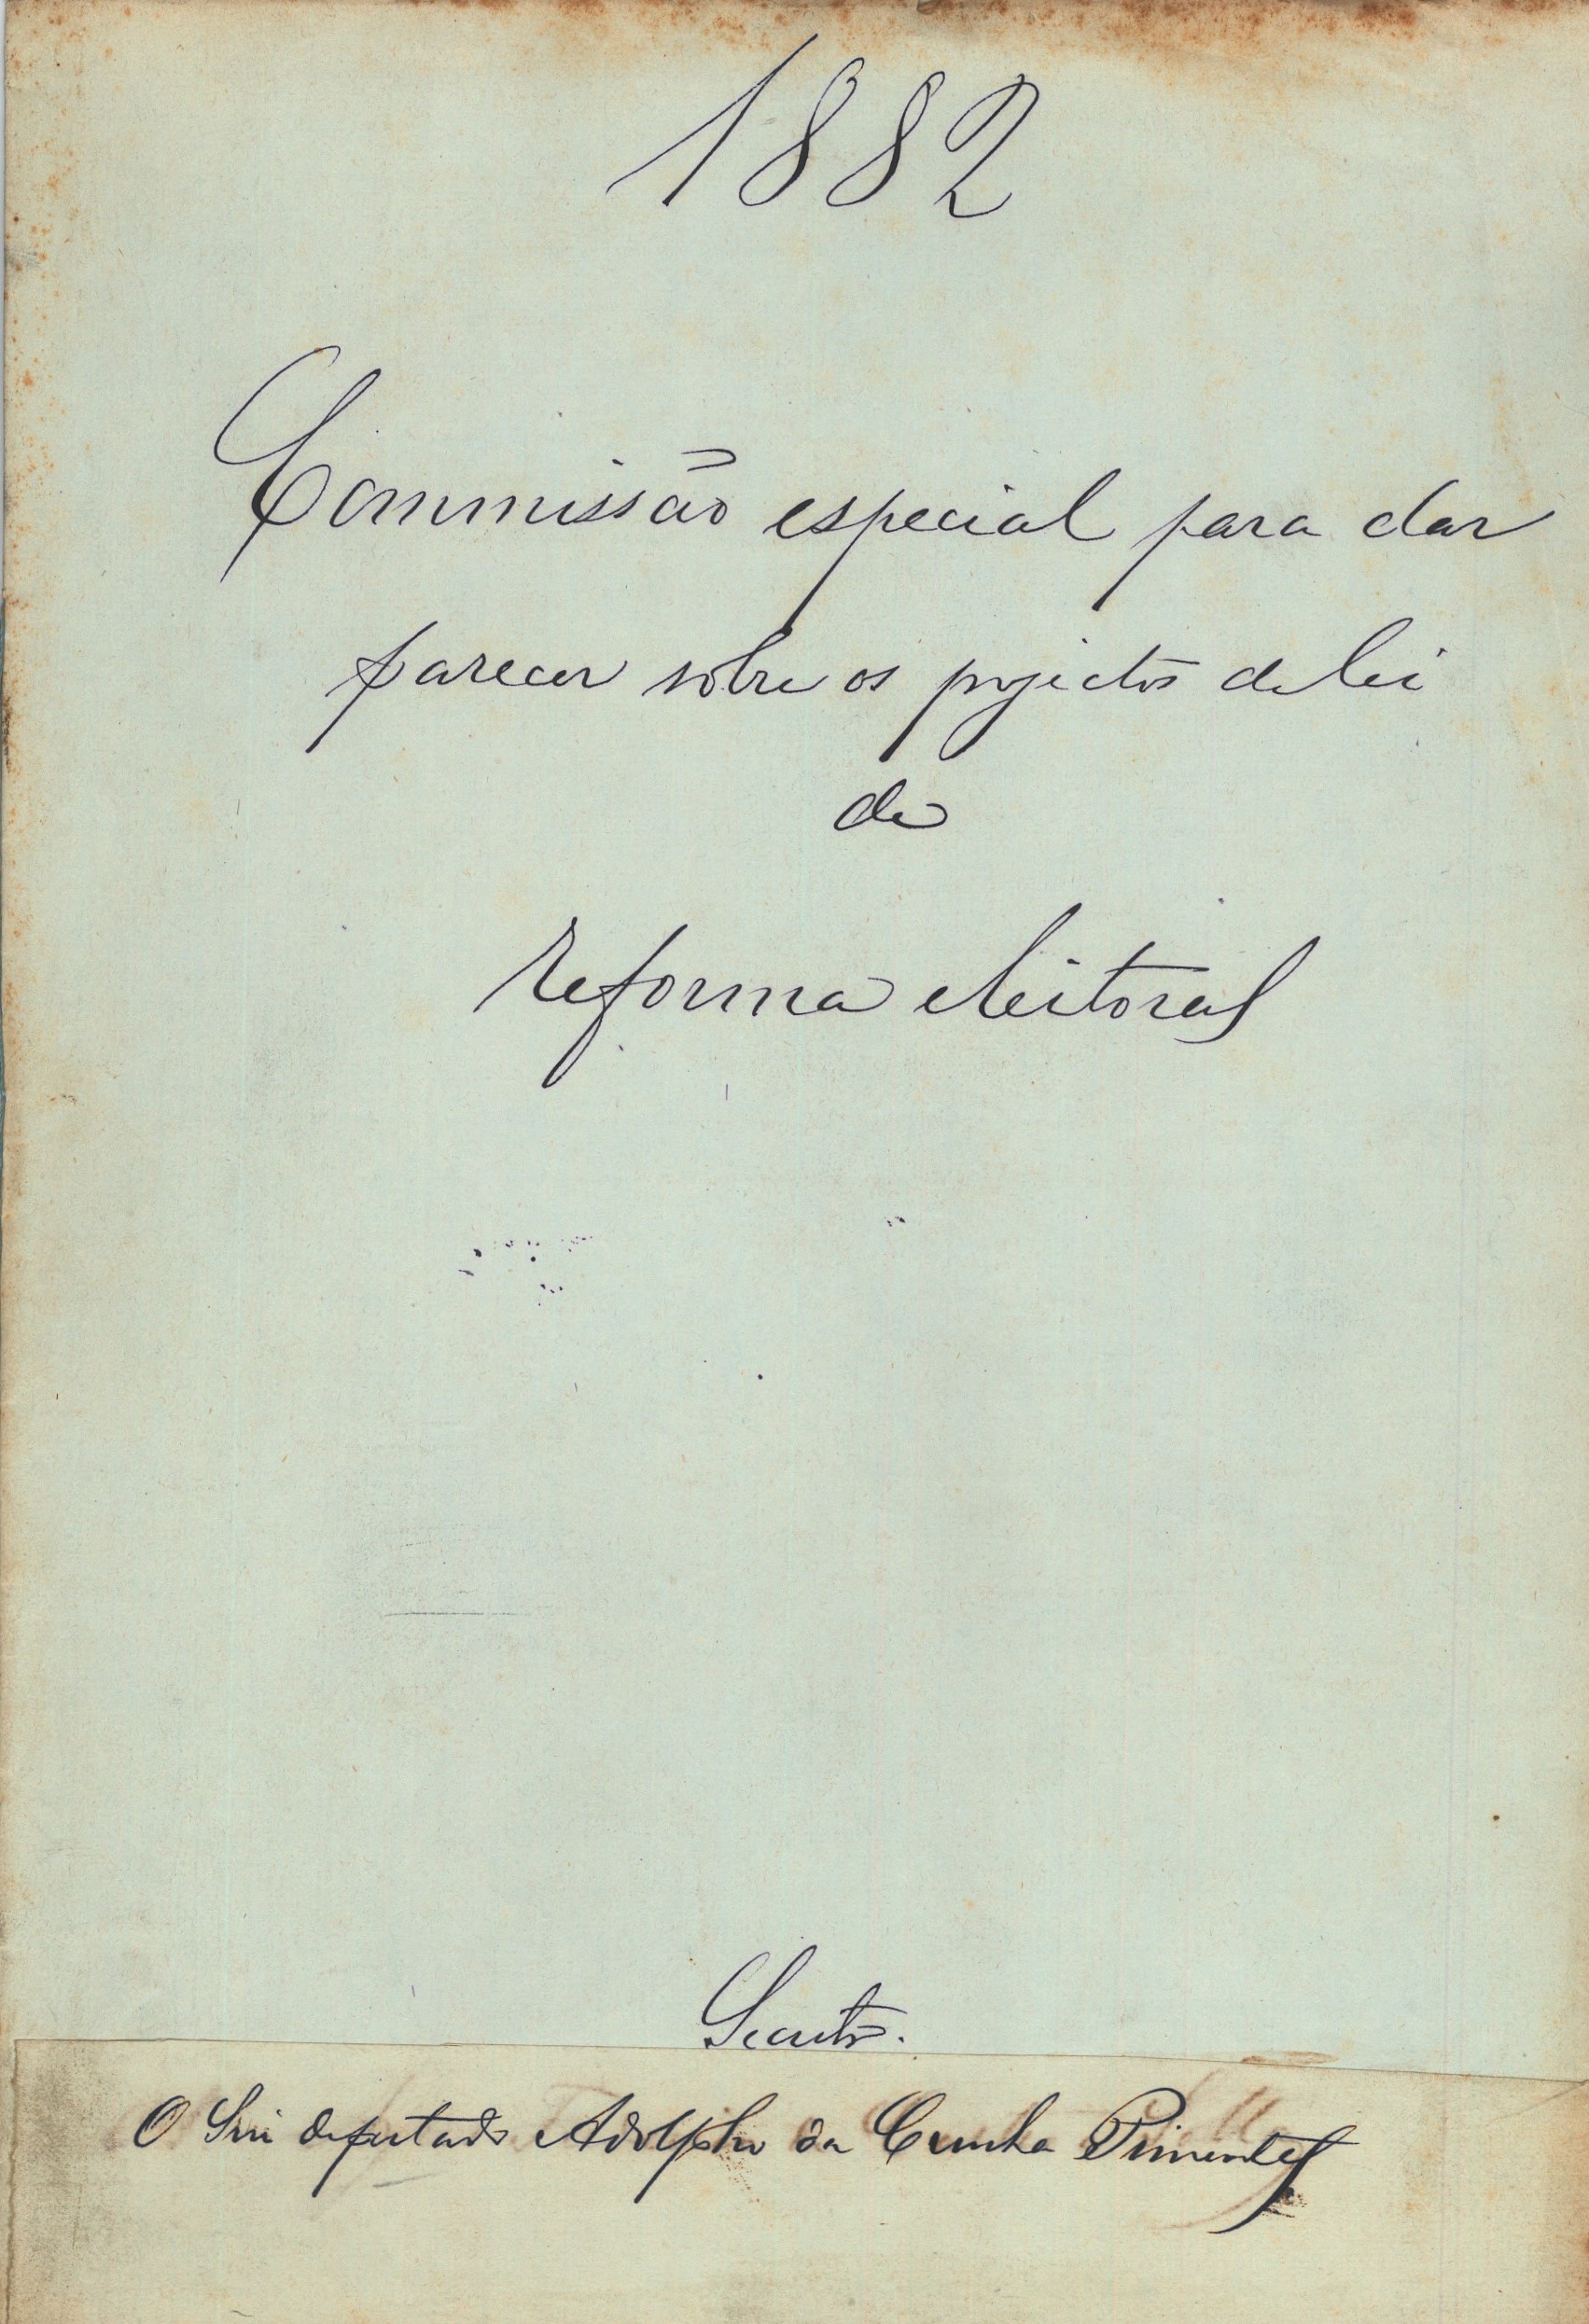 1882
Commissão especial para dar
parecer sobre os projectos de lei
de
reforma eleitoral
Secretº.
O Snr deputado Adolpho da Cunha Pimentel